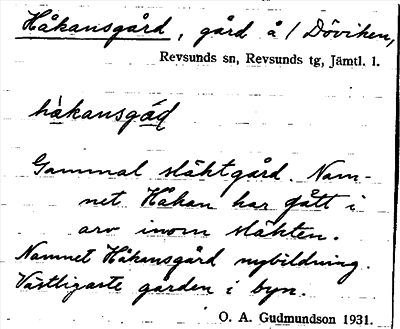 Håkansgård, gård å / Döviken,
Revsunds sn, Revsunds tg, Jämtl. l.
håkansgáḍ
Gammal släktgård. Nam-
net Håkan har gått i
arv inom släkten.
Namnet Håkansgård nybildning.
Västligaste gården i byn.
O. A. Gudmundson 1931.